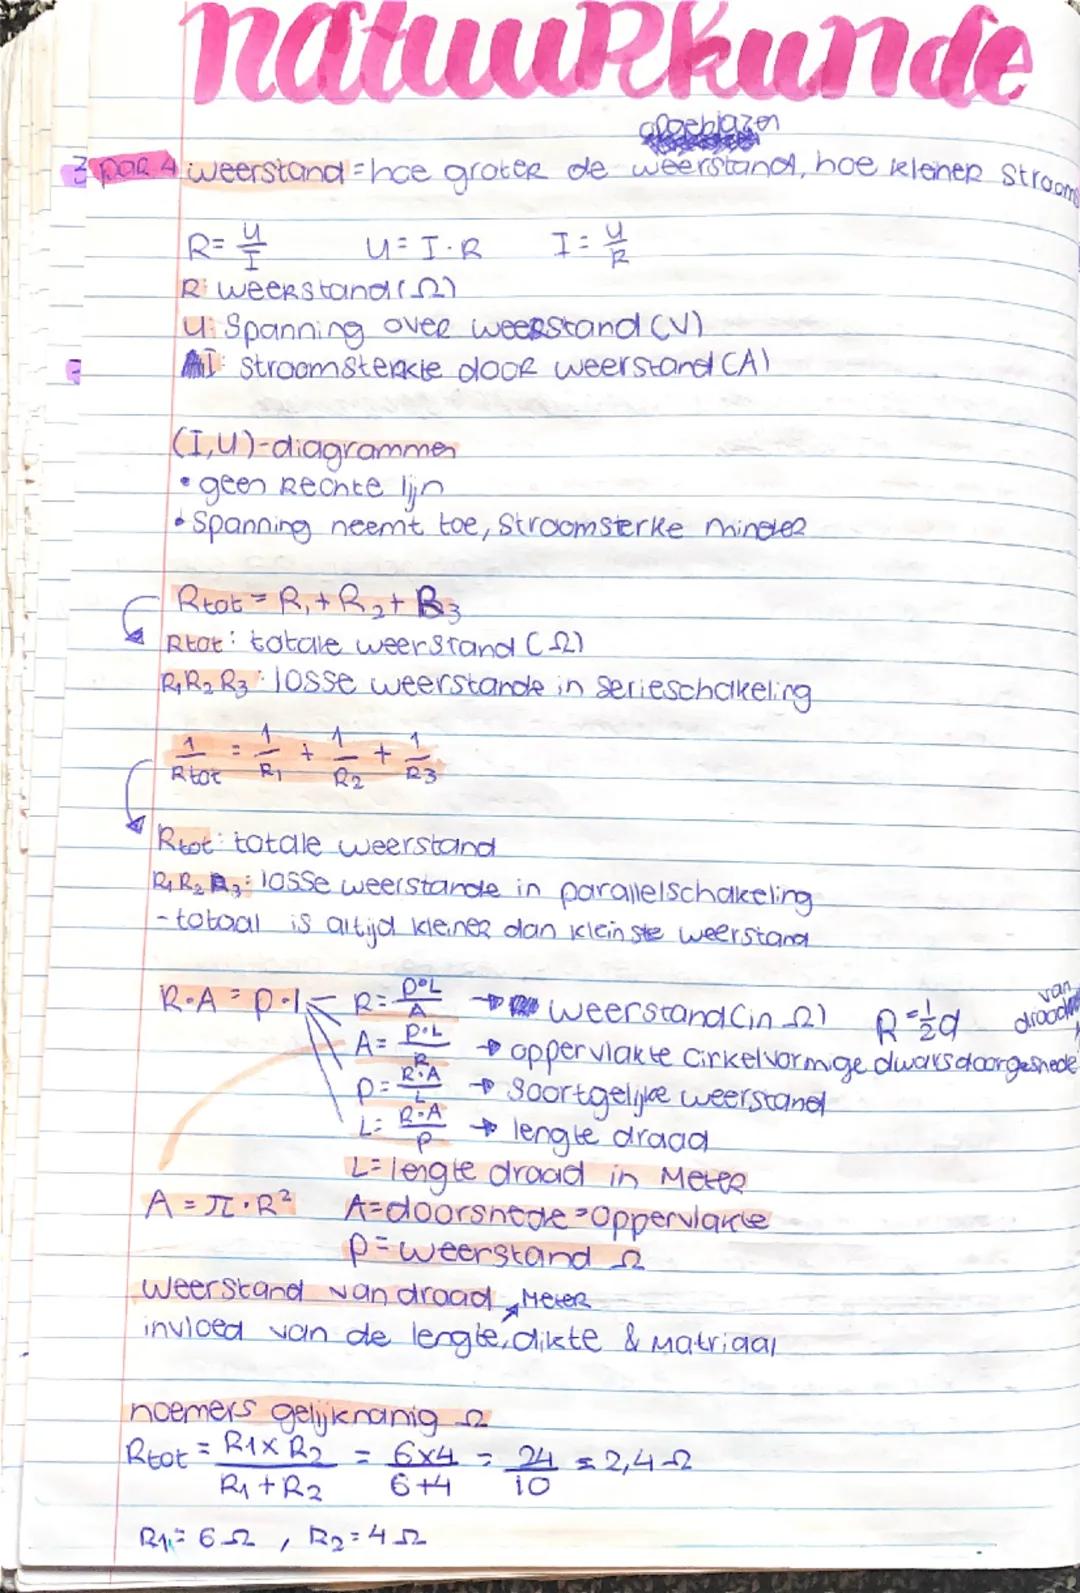 natuurkunde
par 4 weerstand = hoe groter de weerstand, hoe kleiner Strooms
R = U/I    U = I · R    I = U/R
R: weerstand (Ω)
U: Spanning over weerstand (V)
I: Stroomsterkte door weerstand (A)
(I,U)-diagrammen
• geen Rechte lijn
• Spanning neemt toe, Stroomsterke minder
Rtot = R₁ + R₂ + R₃
Rtot: totale weerstand (Ω)
R₁ R₂ R₃: losse weerstande in serieschakeling
1/Rtot = 1/R₁ + 1/R₂ + 1/R₃
Rtot: totale weerstand
R₁ R₂ R₃: losse weerstande in parallelschakeling
- totaal is altijd kleiner dan kleinste weerstand
R · A = ρ · l    R = ρ·L/A → weerstand (in Ω)    R = ½d van draad
A = ρ·L/R → oppervlakte cirkelvormige dwarsdoorgesnede
ρ = R·A/L → Soortgelijke weerstand
L = R·A/ρ → lengte draad
L = lengte draad in Meter
A = π · R²    A = doorsnede = oppervlakte
ρ = weerstand Ω
weerstand van draad Meter
invloed van de lengte, dikte & Matriaal
noemers gelijknanig Ω
Rtot = R1 x R2 / R1 + R2 = 6x4 / 6+4 = 24/10 = 2,4 Ω
R1 = 6 Ω , R2 = 4 Ω